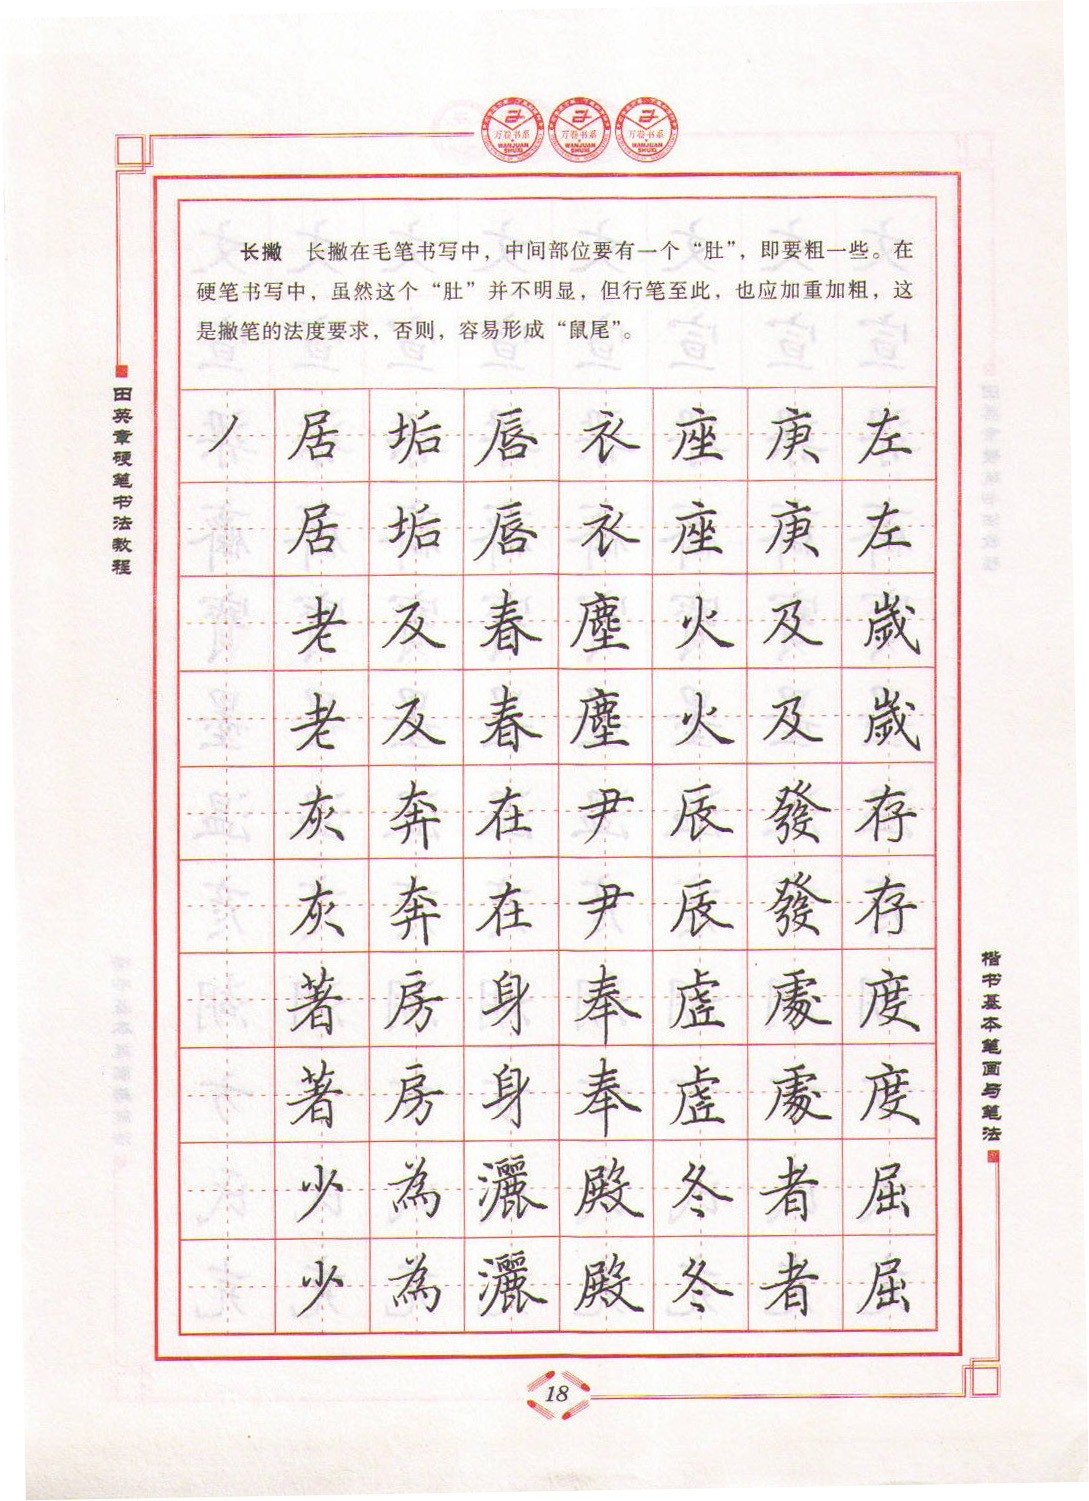 万卷书系 万卷书系 万卷书系
WANJUAN SHUXI WANJUAN SHUXI WANJUAN SHUXI
长撇 长撇在毛笔书写中，中间部位要有一个“肚”，即要粗一些。在
硬笔书写中，虽然这个“肚”并不明显，但行笔至此，也应加重加粗，这
是撇笔的法度要求，否则，容易形成“鼠尾”。
田英章硬笔书法教程
丿 居 垢 唇 衣 座 庚 左
居 垢 唇 衣 座 庚 左
老 反 春 塵 火 及 歲
老 反 春 塵 火 及 歲
灰 奔 在 尹 辰 發 存
灰 奔 在 尹 辰 發 存
著 房 身 奉 虚 處 度
著 房 身 奉 虚 處 度
少 為 灑 殿 冬 者 屈
少 為 灑 殿 冬 者 屈
楷书基本笔画与笔法
18